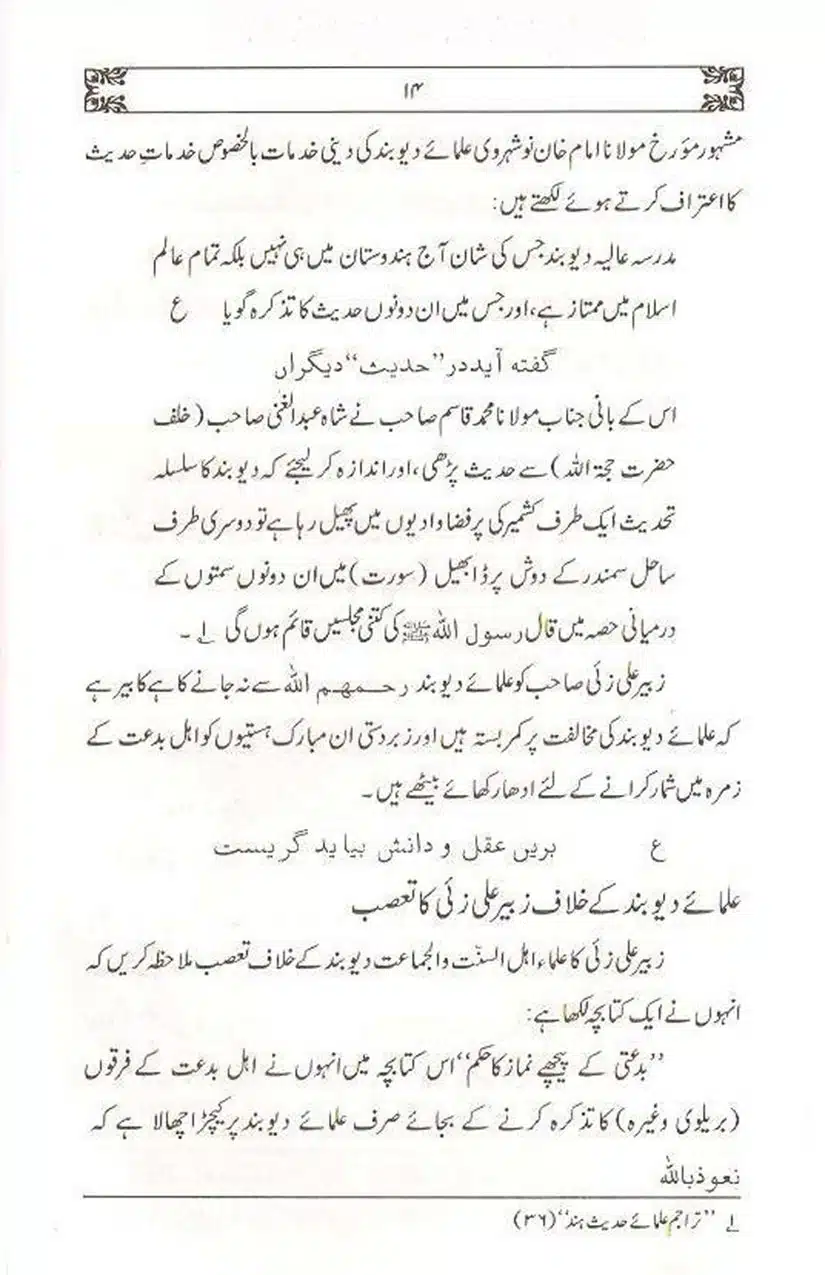 ۱۴
مشہور مؤرخ مولانا امام خان نوشہروی علمائے دیوبند کی دینی خدمات بالخصوص خدماتِ حدیث
کا اعتراف کرتے ہوئے لکھتے ہیں:
مدرسہ عالیہ دیوبند جس کی شان آج ہندوستان میں ہی نہیں بلکہ تمام عالم
اسلام میں ممتاز ہے، اور جس میں ان دونوں حدیث کا تذکرہ گویا ع
گفته آید در ”حدیث“ دیگراں
اس کے بانی جناب مولانا محمد قاسم صاحب نے شاہ عبدالغنی صاحب (خلف
حضرت حجۃ اللہ) سے حدیث پڑھی، اور اندازہ کر لیجئے کہ دیوبند کا سلسلہ
تحدیث ایک طرف کشمیر کی پرفضا وادیوں میں پھیل رہا ہے تو دوسری طرف
ساحل سمندر کے دوش پر ڈابھیل (سورت) میں ان دونوں سمتوں کے
درمیانی حصہ میں قال رسول اللہ ﷺ کی کتنی مجلسیں قائم ہوں گی ۱؎۔
زبیر علی زئی صاحب کو علمائے دیوبند رحمهم اللہ سے نہ جانے کاہے کا بیر ہے
کہ علمائے دیوبند کی مخالفت پر کمر بستہ ہیں اور زبردستی ان مبارک ہستیوں کو اہل بدعت کے
زمرہ میں شمار کرانے کے لئے ادھار کھائے بیٹھے ہیں۔
ع بریں عقل و دانش بباید گریست
علمائے دیوبند کے خلاف زبیر علی زئی کا تعصب
زبیر علی زئی کا علماء اہل السنّت والجماعت دیوبند کے خلاف تعصب ملاحظہ کریں کہ
انہوں نے ایک کتابچہ لکھا ہے:
”بدعتی کے پیچھے نماز کا حکم“ اس کتابچہ میں انہوں نے اہل بدعت کے فرقوں
(بریلوی وغیرہ) کا تذکرہ کرنے کے بجائے صرف علمائے دیوبند پر کیچڑ اچھالا ہے کہ
نعوذ باللہ
۱؎ ”تراجم علمائے حدیث ہند“ (۳۶)